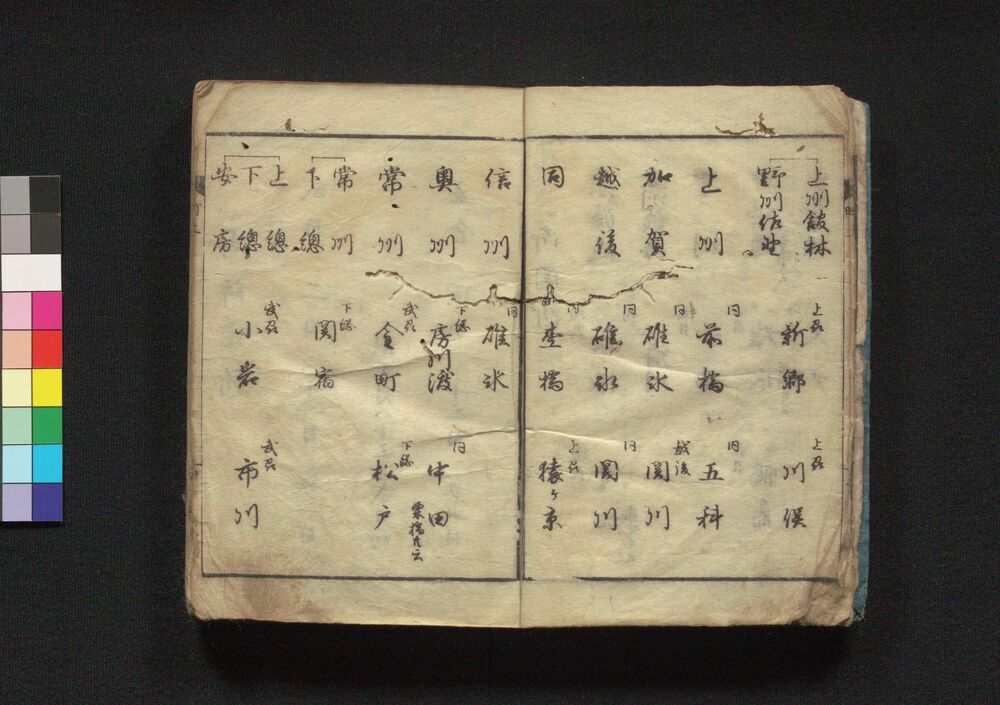 上州舘林
野州佐野
上州
新郷
川俣
上州
同
前橋
同
五科
加賀
同
碓氷
越後
関川
越後
同
碓氷
同
関川
同
同
杢橋
上州
猿ヶ京
信州
同
碓氷
奥州
下総
房川渡
同
中田
栗橋共云
常州
武州
金町
下総
松戸
常州
下総
下総
関宿
上總
下總
安房
武州
小岩
武州
市川